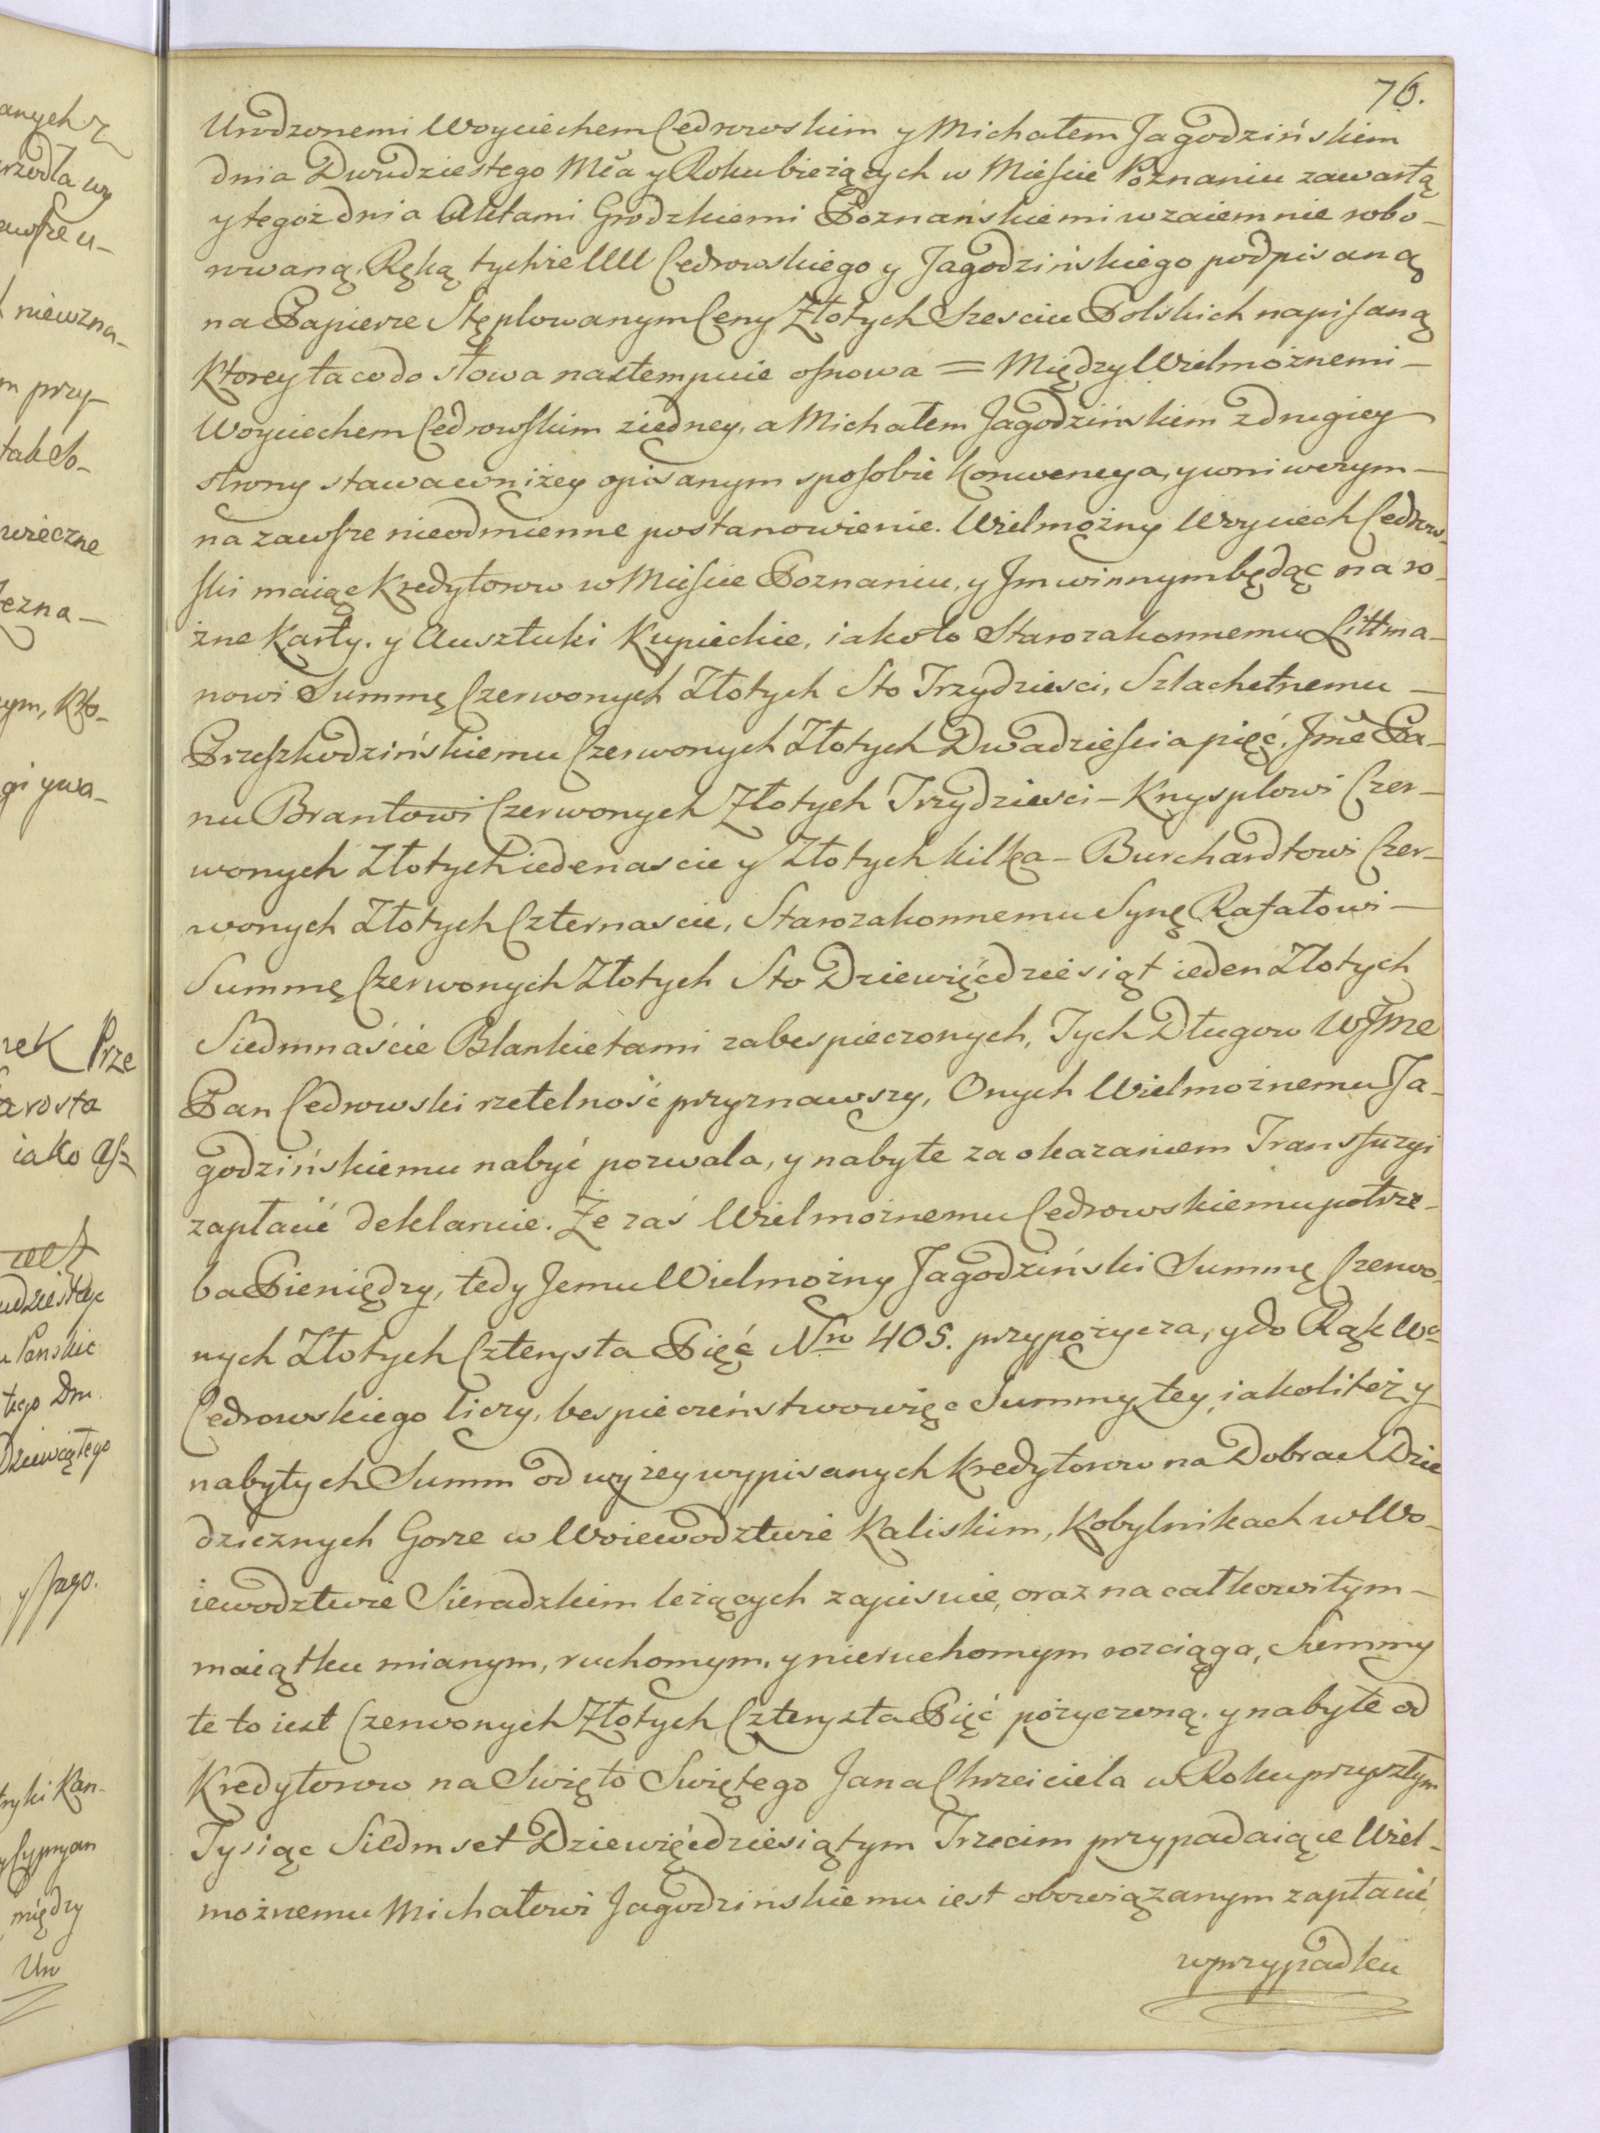 76.
Urodzonemi Woyciechem Cedrowskim y Michałem Jagodzińskiem
dnia Dwudziestego Mca y Roku bieżących w Mieście Poznaniu zawartą
y tegoż dnia Aktami Grodzkiemi Poznańskiemi wzaiemnie robo-
rowaną, Ręką tychże UU Cedrowskiego y Jagodzińskiego podpisaną
na Papierze Stęplowanym Ceny Złotych Szesciu Polskich napisaną
Ktorey ta co do słowa nastempuie osnowa = Między Wielmożnemi-
Woyciechem Cedrowskim ziedney, a Michałem Jagodzińskiem zdrugiey
strony stawa wniżey opisanym sposobie Konwencya, y wniwczym-
na zawsze nieodmienne postanowienie. Wielmożny Woyciech Cedrow-
ski maiąc Kredytorow w Mieście Poznaniu, y Jm winnym będąc na ro-
żne Karty. y Ausztuki Kupieckie, iako to Starozakonnemu Littma-
nowi Summę Czerwonych Złotych Sto Trzydziesci, Szlachetnemu-
Przeszkodzińskiemu Czerwonych Złotych Dwadziescia pięć. Jmc Pa-
nu Brantowi Czerwonych Złotych Trzydziesci- Knysplowi Czer-
wonych Złotych iedenascie y Złotych kilka- Burchardtowi Czer-
wonych Złotych Czternascie, Starozakonnemu Synę Rafałowi-
Summę Czerwonych Złotych Sto Dziewięćdziesiąt ieden Złotych
Siedmnaście Blankietami zabespieczonych, Tych Długow WJmc
Pan Cedrowski rzetelność przyznawszy, Onych Wielmożnemu Ja-
godzińskiemu nabyć pozwala, y nabyte za okazaniem Transfuzyi
zapłacić deklaruie. Że zaś Wielmożnemu Cedrowskiemu potrze-
ba Pieniędzy, tedy Jemu Wielmożny Jagodziński Summę Czerwo-
nych Złotych Czterysta Pięć Nro 405. przypożycza, y do Rąk Wo
Cedrowskiego liczy, bespieczeństwo więc Summy tey iakoliteż y
nabytych Summ od wyżey wypisanych Kredytorow na Dobrach Dzie
dzicznych Gorze w Woiewodztwie Kaliskim, Kobylnikach w Wo-
iewodztwie Sieradzkim leżących zapisuie, oraz na całkowitym-
maiątku mianym, ruchomym, y nieruchomym rozciąga, Summy
te to iest Czerwonych Złotych Czterysta Pięć pożyczoną. y nabyte od
Kredytorow na Swięto Swiętego Jana Chrzciciela w Roku przyszłym
Tysiąc Siedmset Dziewięćdziesiątym Trzecim przypadaiące Wiel-
możnemu Michałowi Jagodzińskiemu iest obowiązanym zapłacić,
wprzypadku